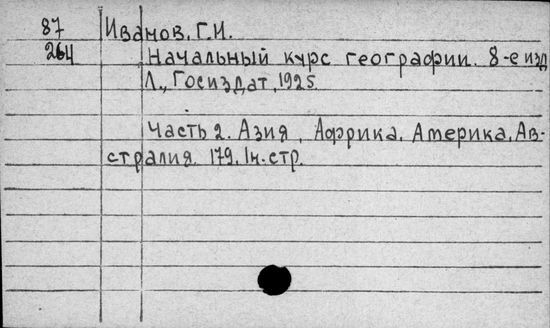 87 Иванов, Г.И.
264 Начальный курс географии. 8-е изд
Л., Госиздат, 1925.
Часть 2. Азия, Африка, Америка, Ав-
стралия. 179, 1н.стр.